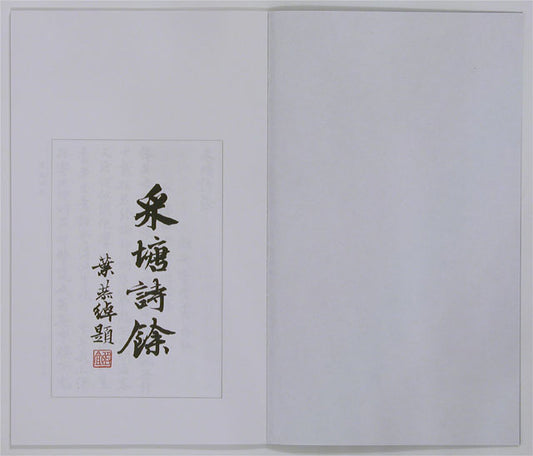 采塘詩餘
葉恭綽題